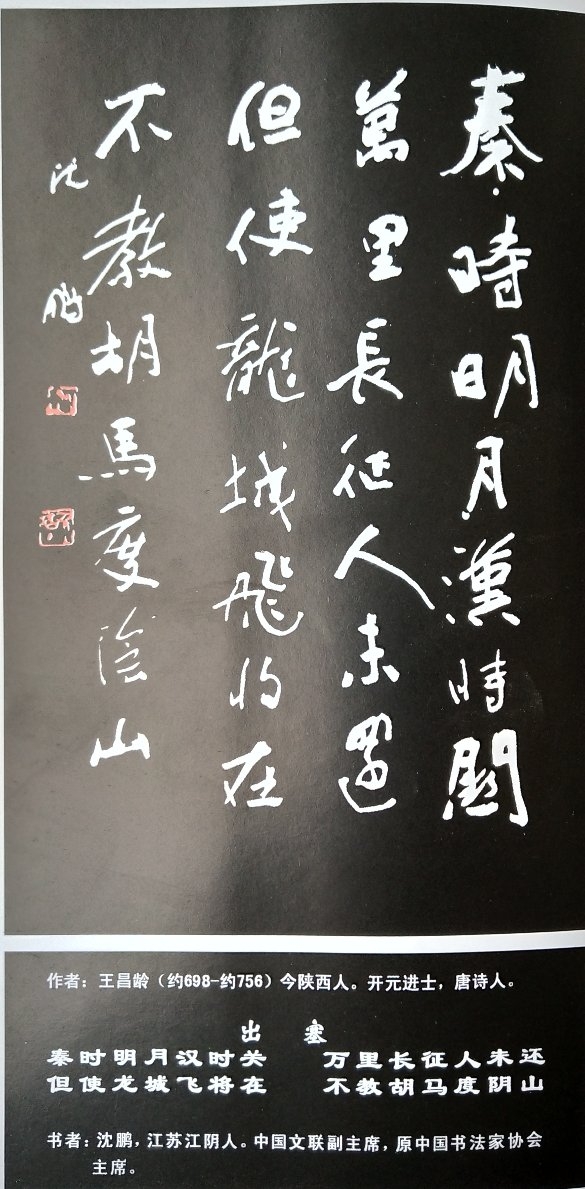 秦時明月漢時關
萬里長征人未還
但使龍城飛将在
不教胡馬度陰山
沈鵬
作者：王昌龄（约698-约756）今陕西人。开元进士，唐诗人。
出 塞
秦时明月汉时关 万里长征人未还
但使龙城飞将在 不教胡马度阴山
书者：沈鹏，江苏江阴人。中国文联副主席，原中国书法家协会
主席。